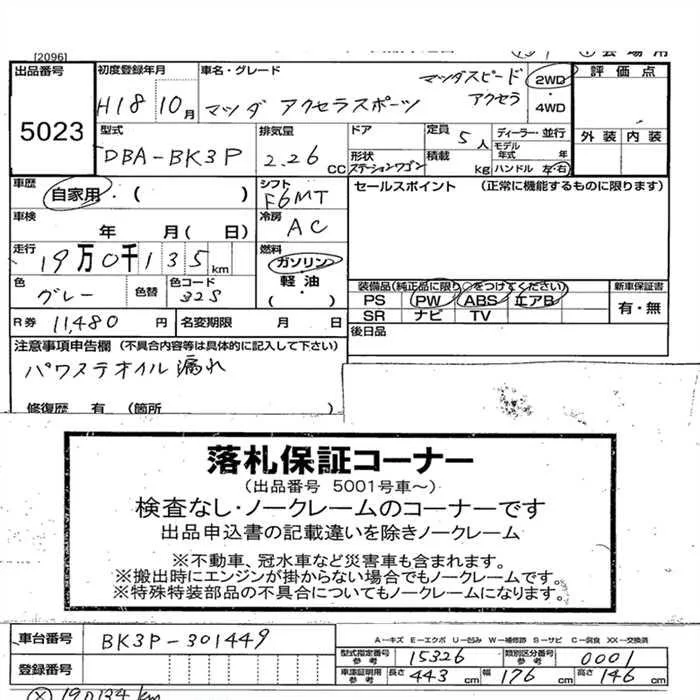 [2096]
出品番号 5023
初度登録年月 H18 10月
車名・グレード マツダ アクセラスポーツ マツダスピードアクセラ
2WD・4WD
評価点
外装 内装
型式 DBA-BK3P
排気量 2.26 CC
ドア
形状 ステーションワゴン
定員 5人
積載 kg
ディーラー・並行
モデル年式 年
ハンドル 左・右
車歴 自家用・( )
シフト F6MT
セールスポイント (正常に機能するものに限ります)
車検 年 月( 日)
冷房 AC
走行 19万0千135km
燃料 ガソリン・軽油・( )
色 グレー 色替 色コード 32S
装備品(純正品に限り○をつけてください)
PS PW ABS エアB
SR ナビ TV
新車保証書
有・無
R券 11,480円 名変期限 月 日
後日品
注意事項申告欄 (不具合内容等は具体的に記入して下さい)
パワステオイル漏れ
修復歴 有 (箇所
落札保証コーナー
(出品番号 5001号車～)
検査なし・ノークレームのコーナーです
出品申込書の記載違いを除きノークレーム
※不動車、冠水車など災害車も含まれます。
※搬出時にエンジンが掛からない場合でもノークレームです。
※特殊特装部品の不具合についてもノークレームになります。
車台番号 BK3P-301449
A－キズ E－エクボ U－凹み W－補修跡 S－サビ C－腐食 XX－交換済
型式指定番号 参考 15326 類別区分番号 参考 0001
登録番号
車庫証明用 参考 長さ 443cm 幅 176cm 高さ 146cm